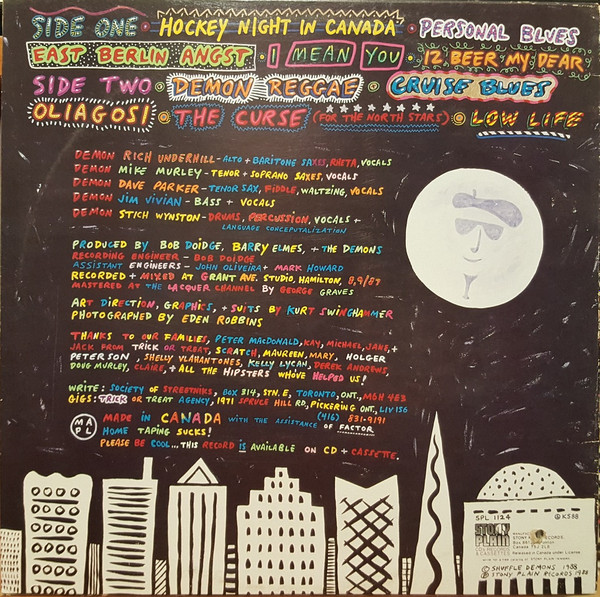 SIDE ONE • HOCKEY NIGHT IN CANADA • PERSONAL BLUES
EAST BERLIN ANGST • I MEAN YOU • 12 BEER MY DEAR
SIDE TWO • DEMON REGGAE • CRUISE BLUES
OLIAGOSI • THE CURSE (FOR THE NORTH STARS) • LOW LIFE
DEMON RICH UNDERHILL - ALTO + BARITONE SAXES, RHETA, VOCALS
DEMON MIKE MURLEY - TENOR + SOPRANO SAXES, VOCALS
DEMON DAVE PARKER - TENOR SAX, FIDDLE, WALTZING, VOCALS
DEMON JIM VIVIAN - BASS + VOCALS
DEMON STICH WYNSTON - DRUMS, PERCUSSION, VOCALS +
LANGUAGE CONCEPTUALIZATION
PRODUCED BY BOB DOIDGE, BARRY ELMES, + THE DEMONS
RECORDING ENGINEER - BOB DOIDGE
ASSISTANT ENGINEERS - JOHN OLIVEIRA + MARK HOWARD
RECORDED + MIXED AT GRANT AVE. STUDIO, HAMILTON, 8,9/87
MASTERED AT THE LACQUER CHANNEL BY GEORGE GRAVES
ART DIRECTION, GRAPHICS, + SUITS BY KURT SWINGHAMMER
PHOTOGRAPHED BY EDEN ROBBINS
THANKS TO OUR FAMILIES, PETER MACDONALD, KAY, MICHAEL, JANE, +
JACK FROM TRICK OR TREAT, SCRATCH, MAUREEN, MARY, HOLGER
PETERSON, SHELLY VLAHANTONES, KELLY LYCAN, DEREK ANDREWS,
DOUG MURLEY, CLAIRE, + ALL THE HIPSTERS WHOVE HELPED US!
WRITE: SOCIETY OF STREETNIKS, BOX 314, STN. E, TORONTO, ONT., M6H 4E3
GIGS: TRICK OR TREAT AGENCY, 1971 SPRUCE HILL RD., PICKERING ONT., L1V 1S6
(416) 831-9191
MAPL
MADE IN CANADA WITH THE ASSISTANCE OF FACTOR
HOME TAPING SUCKS!
PLEASE BE COOL... THIS RECORD IS AVAILABLE ON CD + CASSETTE.
SPL 1124
KS88
STONY PLAIN
© SHUFFLE DEMONS 1988
℗ STONY PLAIN RECORDS 1988